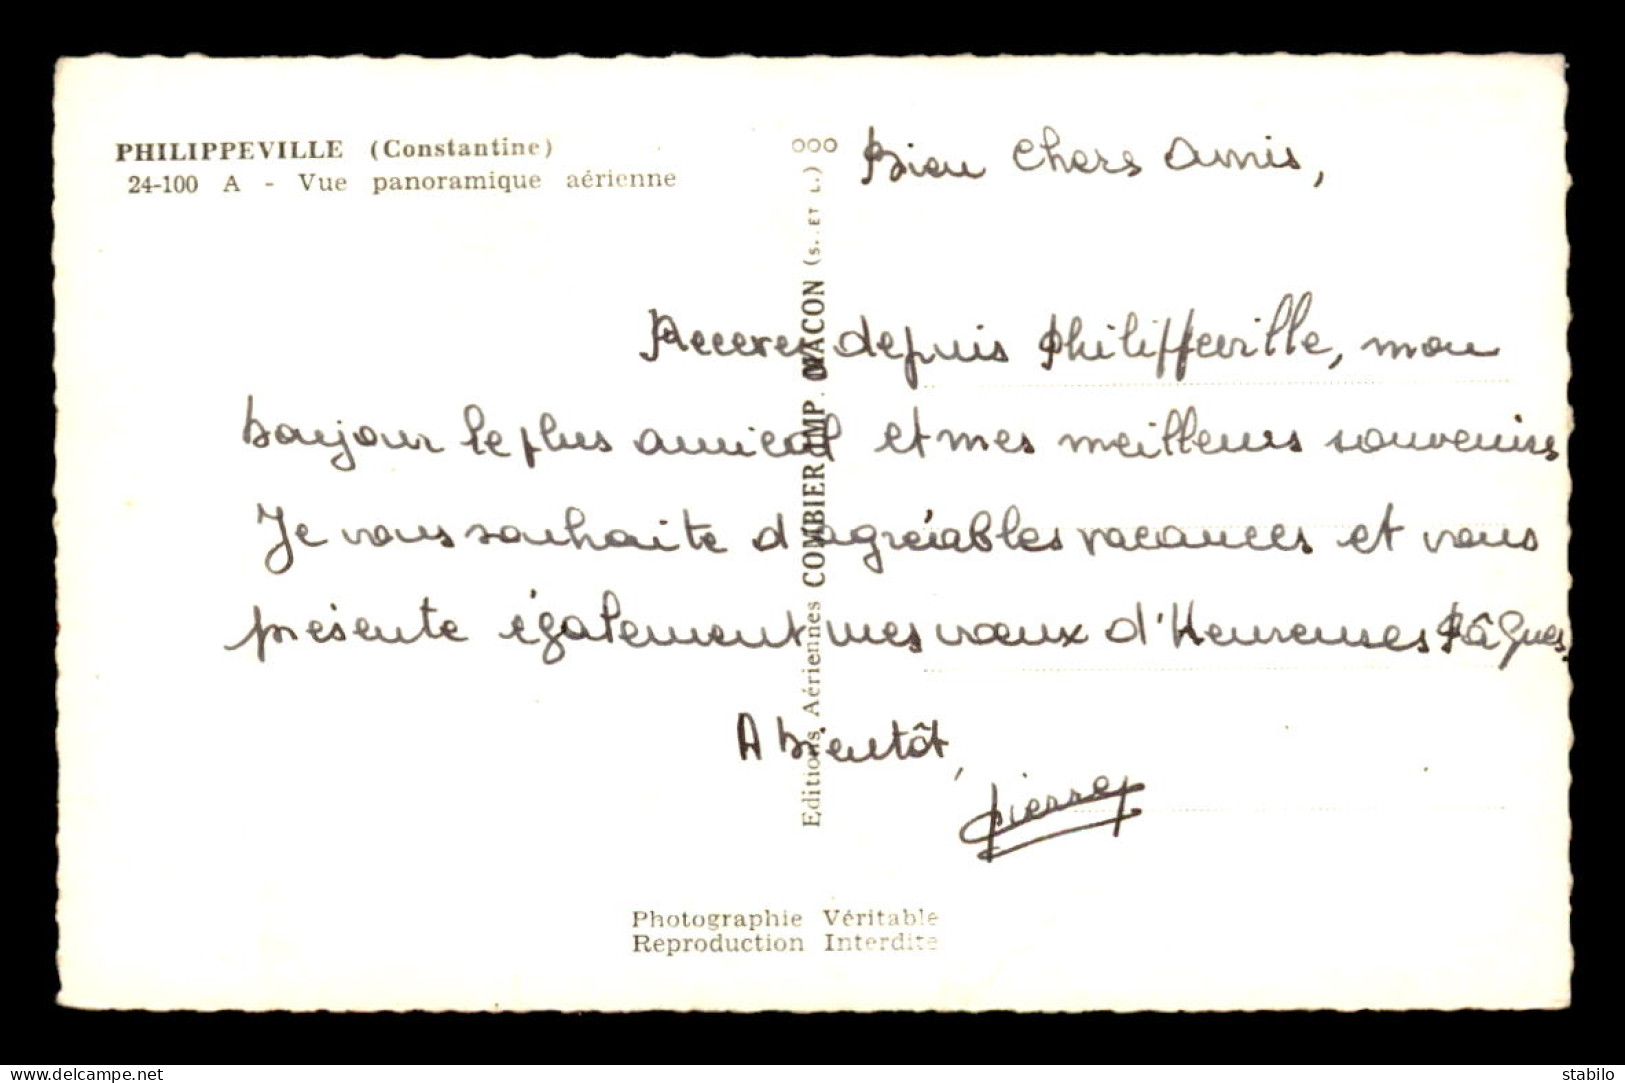 PHILIPPEVILLE (Constantine)
24-100 A - Vue panoramique aérienne
Editions Aériennes COMBIER IMP. MACON (S. ET L.)
Bien Chers Amis,
Recevez depuis Philippeville, mon
bonjour le plus amical et mes meilleurs souvenirs
Je vous souhaite d'agréables vacances et vous
présente également mes vœux d'Heureuses Pâques.
A bientôt,
Pierre
Photographie Véritable
Reproduction Interdite
www.delcampe.net
stabilo